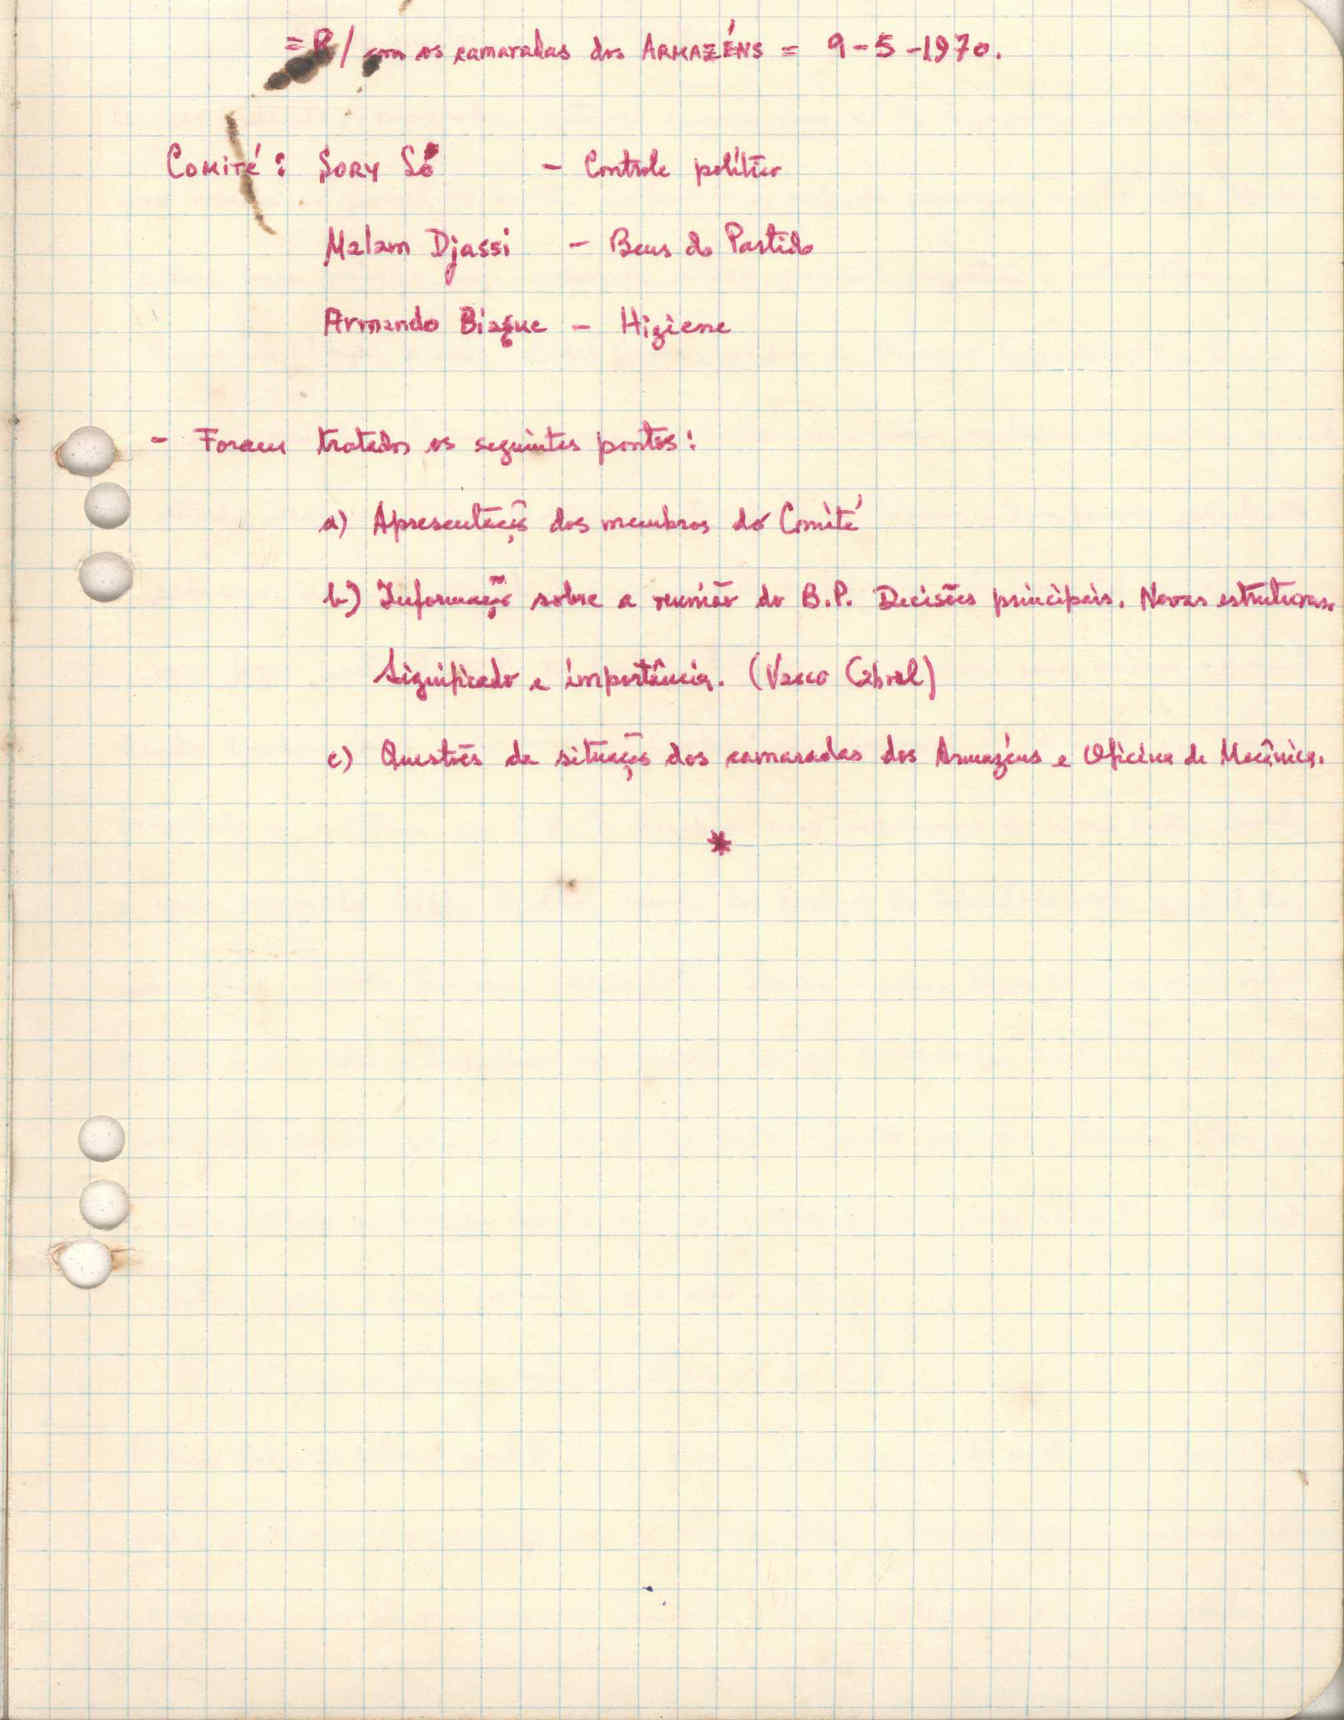 = R/ com os camaradas dos ARMAZÉNS = 9-5-1970.
COMITÉ: SORY SÓ - Controle político
Malam Djassi - Bens do Partido
Armando Biague - Higiene
- Foram tratados os seguintes pontos:
a) Apresentação dos membros do Comité
b) Informação sobre a reunião do B.P. Decisões principais. Novas estruturas.
Significado e importância. (Vasco Cabral)
c) Questões da situação dos camaradas dos Armazéns e Oficina de Mecânica.
*